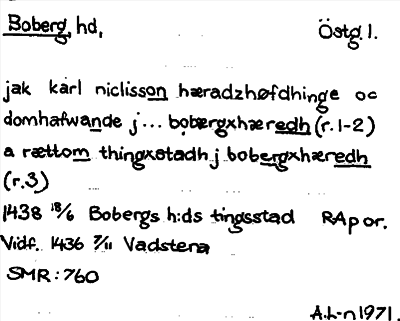 Boberg, hd, Östg. l.
jak karl niclisson hæradzhøfdhinge oc
domhafwande j... bobærgxhæredh (r.1-2)
a rættom thingxstadh j bobergxhæredh
(r.3)
1438 18/6 Bobergs h:ds tingsstad RAp or.
Vidf. 1436 7/11 Vadstena
SMR: 760
A.L-n 1971.